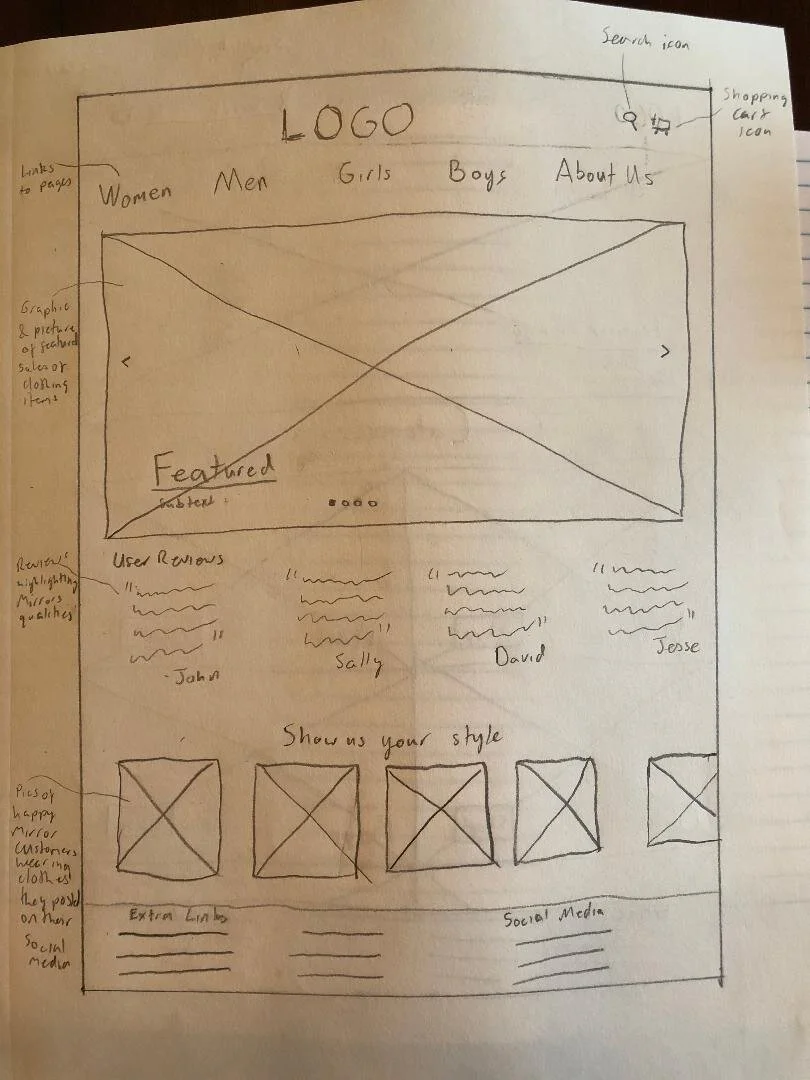 Search icon
Shopping
cart
icon
LOGO
Links
to pages
Women Men Girls Boys About Us
Graphic
& picture
of featured
sales of
clothing
items
< >
Featured
Subtext
User Reviews
Reviews
highlighting
Mirrors
qualities
" " " "
" " " "
-John Sally David Jesse
Show us your style
Pics of
happy
Mirror
customers
wearing
clothes
they post
on their
Social
media
Extra Links Social Media